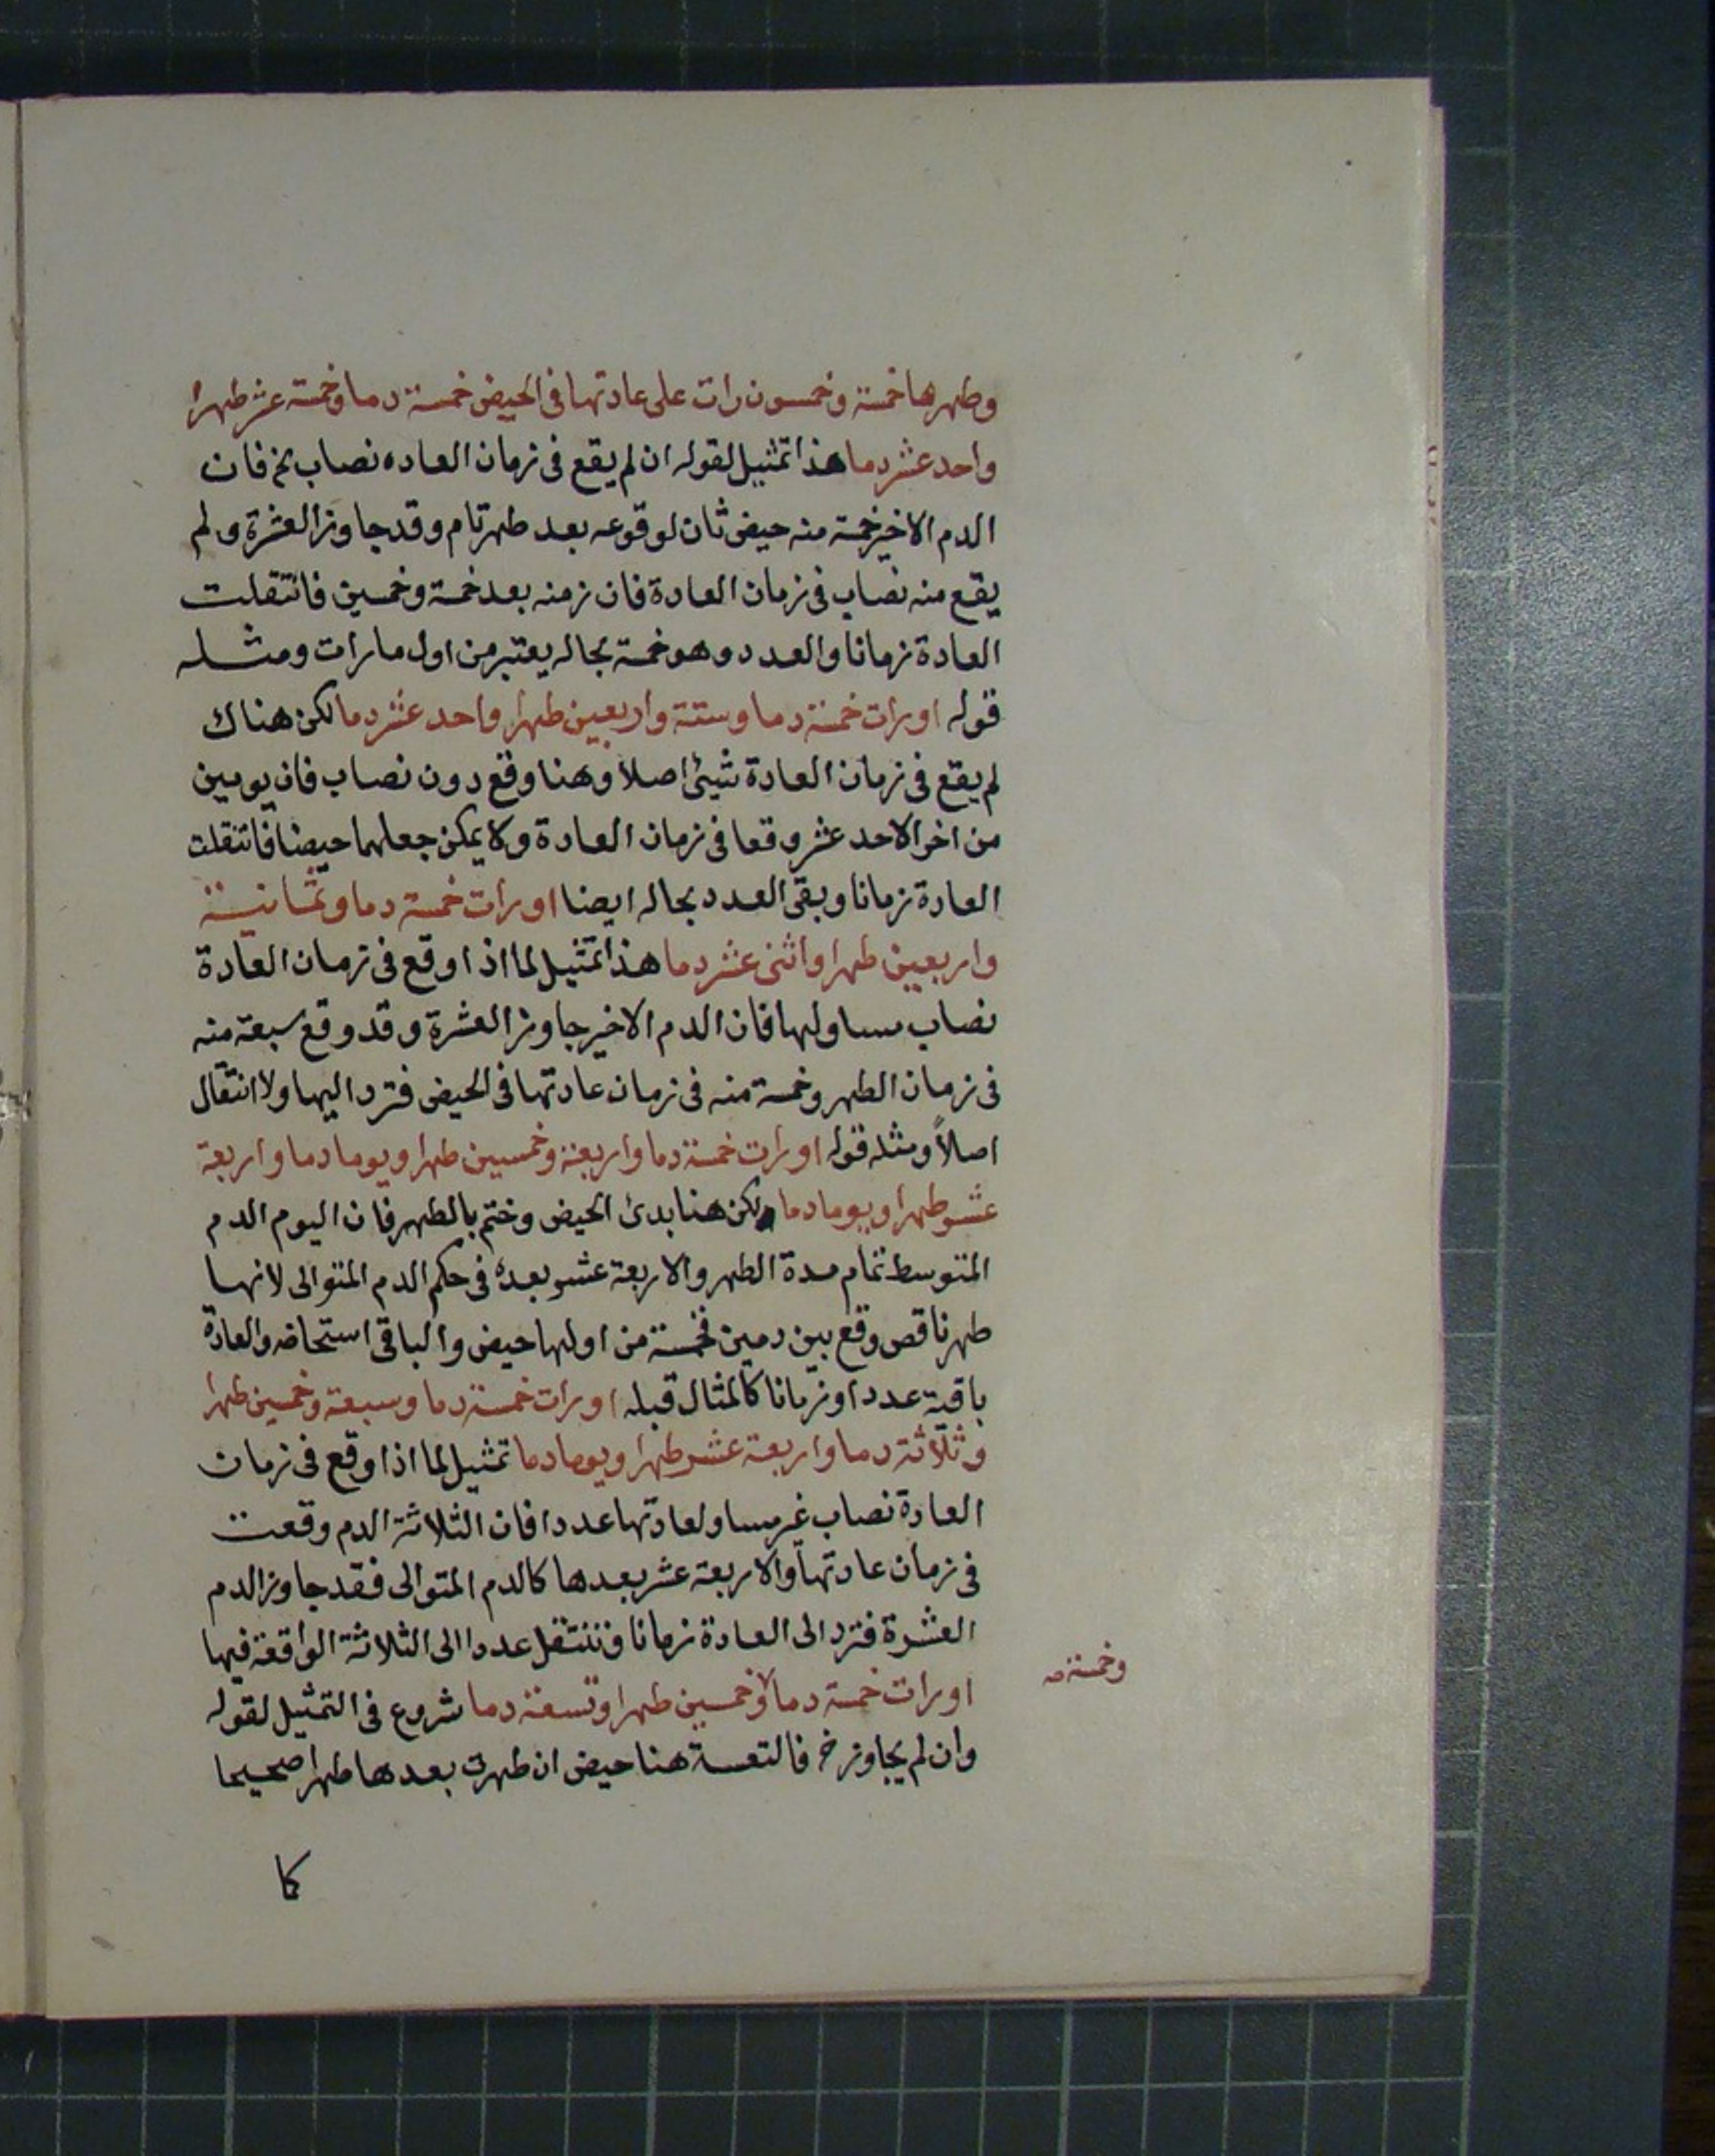 وطهرها خمسة وخمسون رات على عادتها فى الحيض خمسة دما وخمسة عشر طهرا
واحد عشر دما هذا تمثيل لقوله ان لم يقع فى زمان العاده نصاب الخ فان
الدم الاخير خمسة منه حيض ثان لوقوعه بعد طهر تام وقد جاوز العشرة ولم
يقع منه نصاب فى زمان العادة فان زمنه بعد خمسة وخمسين فانتقلت
العادة زمانا والعدد وهو خمسة بحاله يعتبر من اول ما رات ومثله
قوله او رات خمسة دما وستة واربعين طهرا واحد عشر دما لكن هناك
لم يقع فى زمان العادة شيئ اصلا وهنا وقع دون نصاب فان يومين
من اخر الاحد عشر وقعا فى زمان العادة ولا يمكن جعلهما حيضا فانتقلت
العادة زمانا وبقى العدد بحاله ايضا او رات خمسة دما وثمانية
واربعين طهرا واثنى عشر دما هذا تمثيل لما اذا وقع فى زمان العادة
نصاب مساو لها فان الدم الاخير جاوز العشرة وقد وقع سبعة منه
فى زمان الطهر وخمسة منه فى زمان عادتها فى الحيض فترد اليها ولا انتقال
اصلاً ومثله قوله او رات خمسة دما واربعة وخمسين طهرا ويوما دما واربعة
عشر طهرا ويوما دما ولكن هنا بدئ الحيض وختم بالطهر فان اليوم الدم
المتوسط تمام مدة الطهر والاربعة عشر بعده فى حكم الدم المتوالى لانها
طهر ناقص وقع بين دمين فخمسة من اولها حيض والباقى استحاضه والعادة
باقية عددا وزمانا كالمثال قبله او رات خمسة دما وسبعة وخمسين طهرا
وثلاثة دما واربعة عشر طهرا ويوما دما تمثيل لما اذا وقع فى زمان
العادة نصاب غير مساو لعادتها عددا فان الثلاثة الدم وقعت
فى زمان عادتها والاربعة عشر بعدها كالدم المتوالى فقد جاوز الدم
العشرة فترد الى العادة زمانا وتنتقل عددا الى الثلاثة الواقعة فيها
او رات خمسة دما وخمسين طهرا وتسعة دما شروع فى التمثيل لقوله
وخمسة صه
وان لم يجاوز الخ فالتعسة هنا حيض ان طهرت بعدها طهرا صحيحا
كا